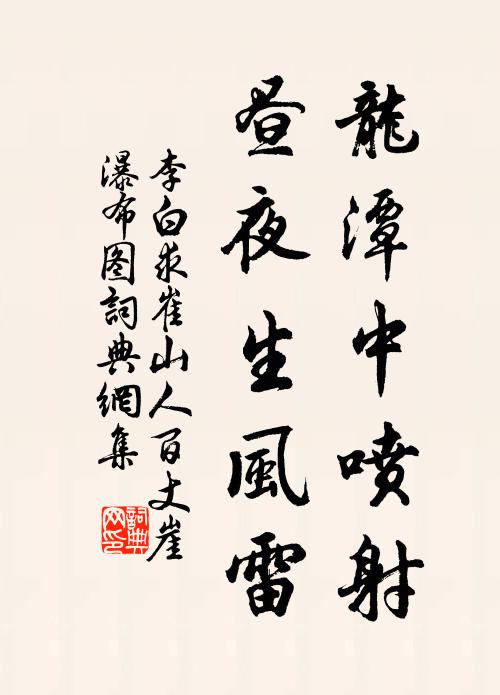 龍潭中噴射
昼夜生風雷
李白求崔山人百丈崖
瀑布图詞典網集
詞典网印